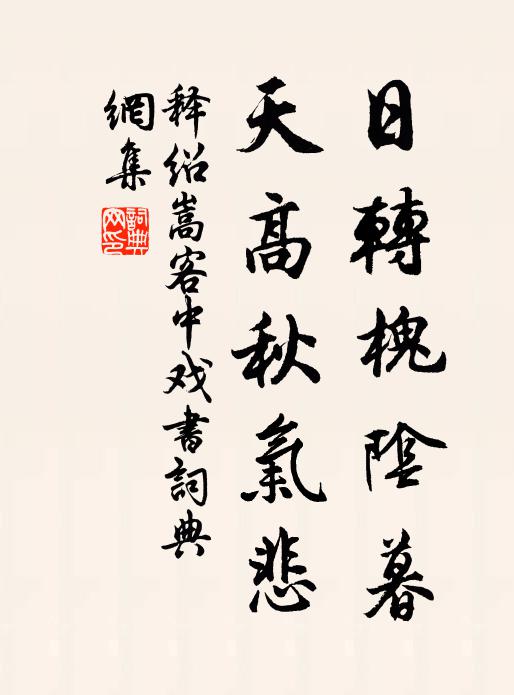 日轉槐陰暮
天高秋氣悲
释绍嵩客中戏書詞典
網集
詞典
网印